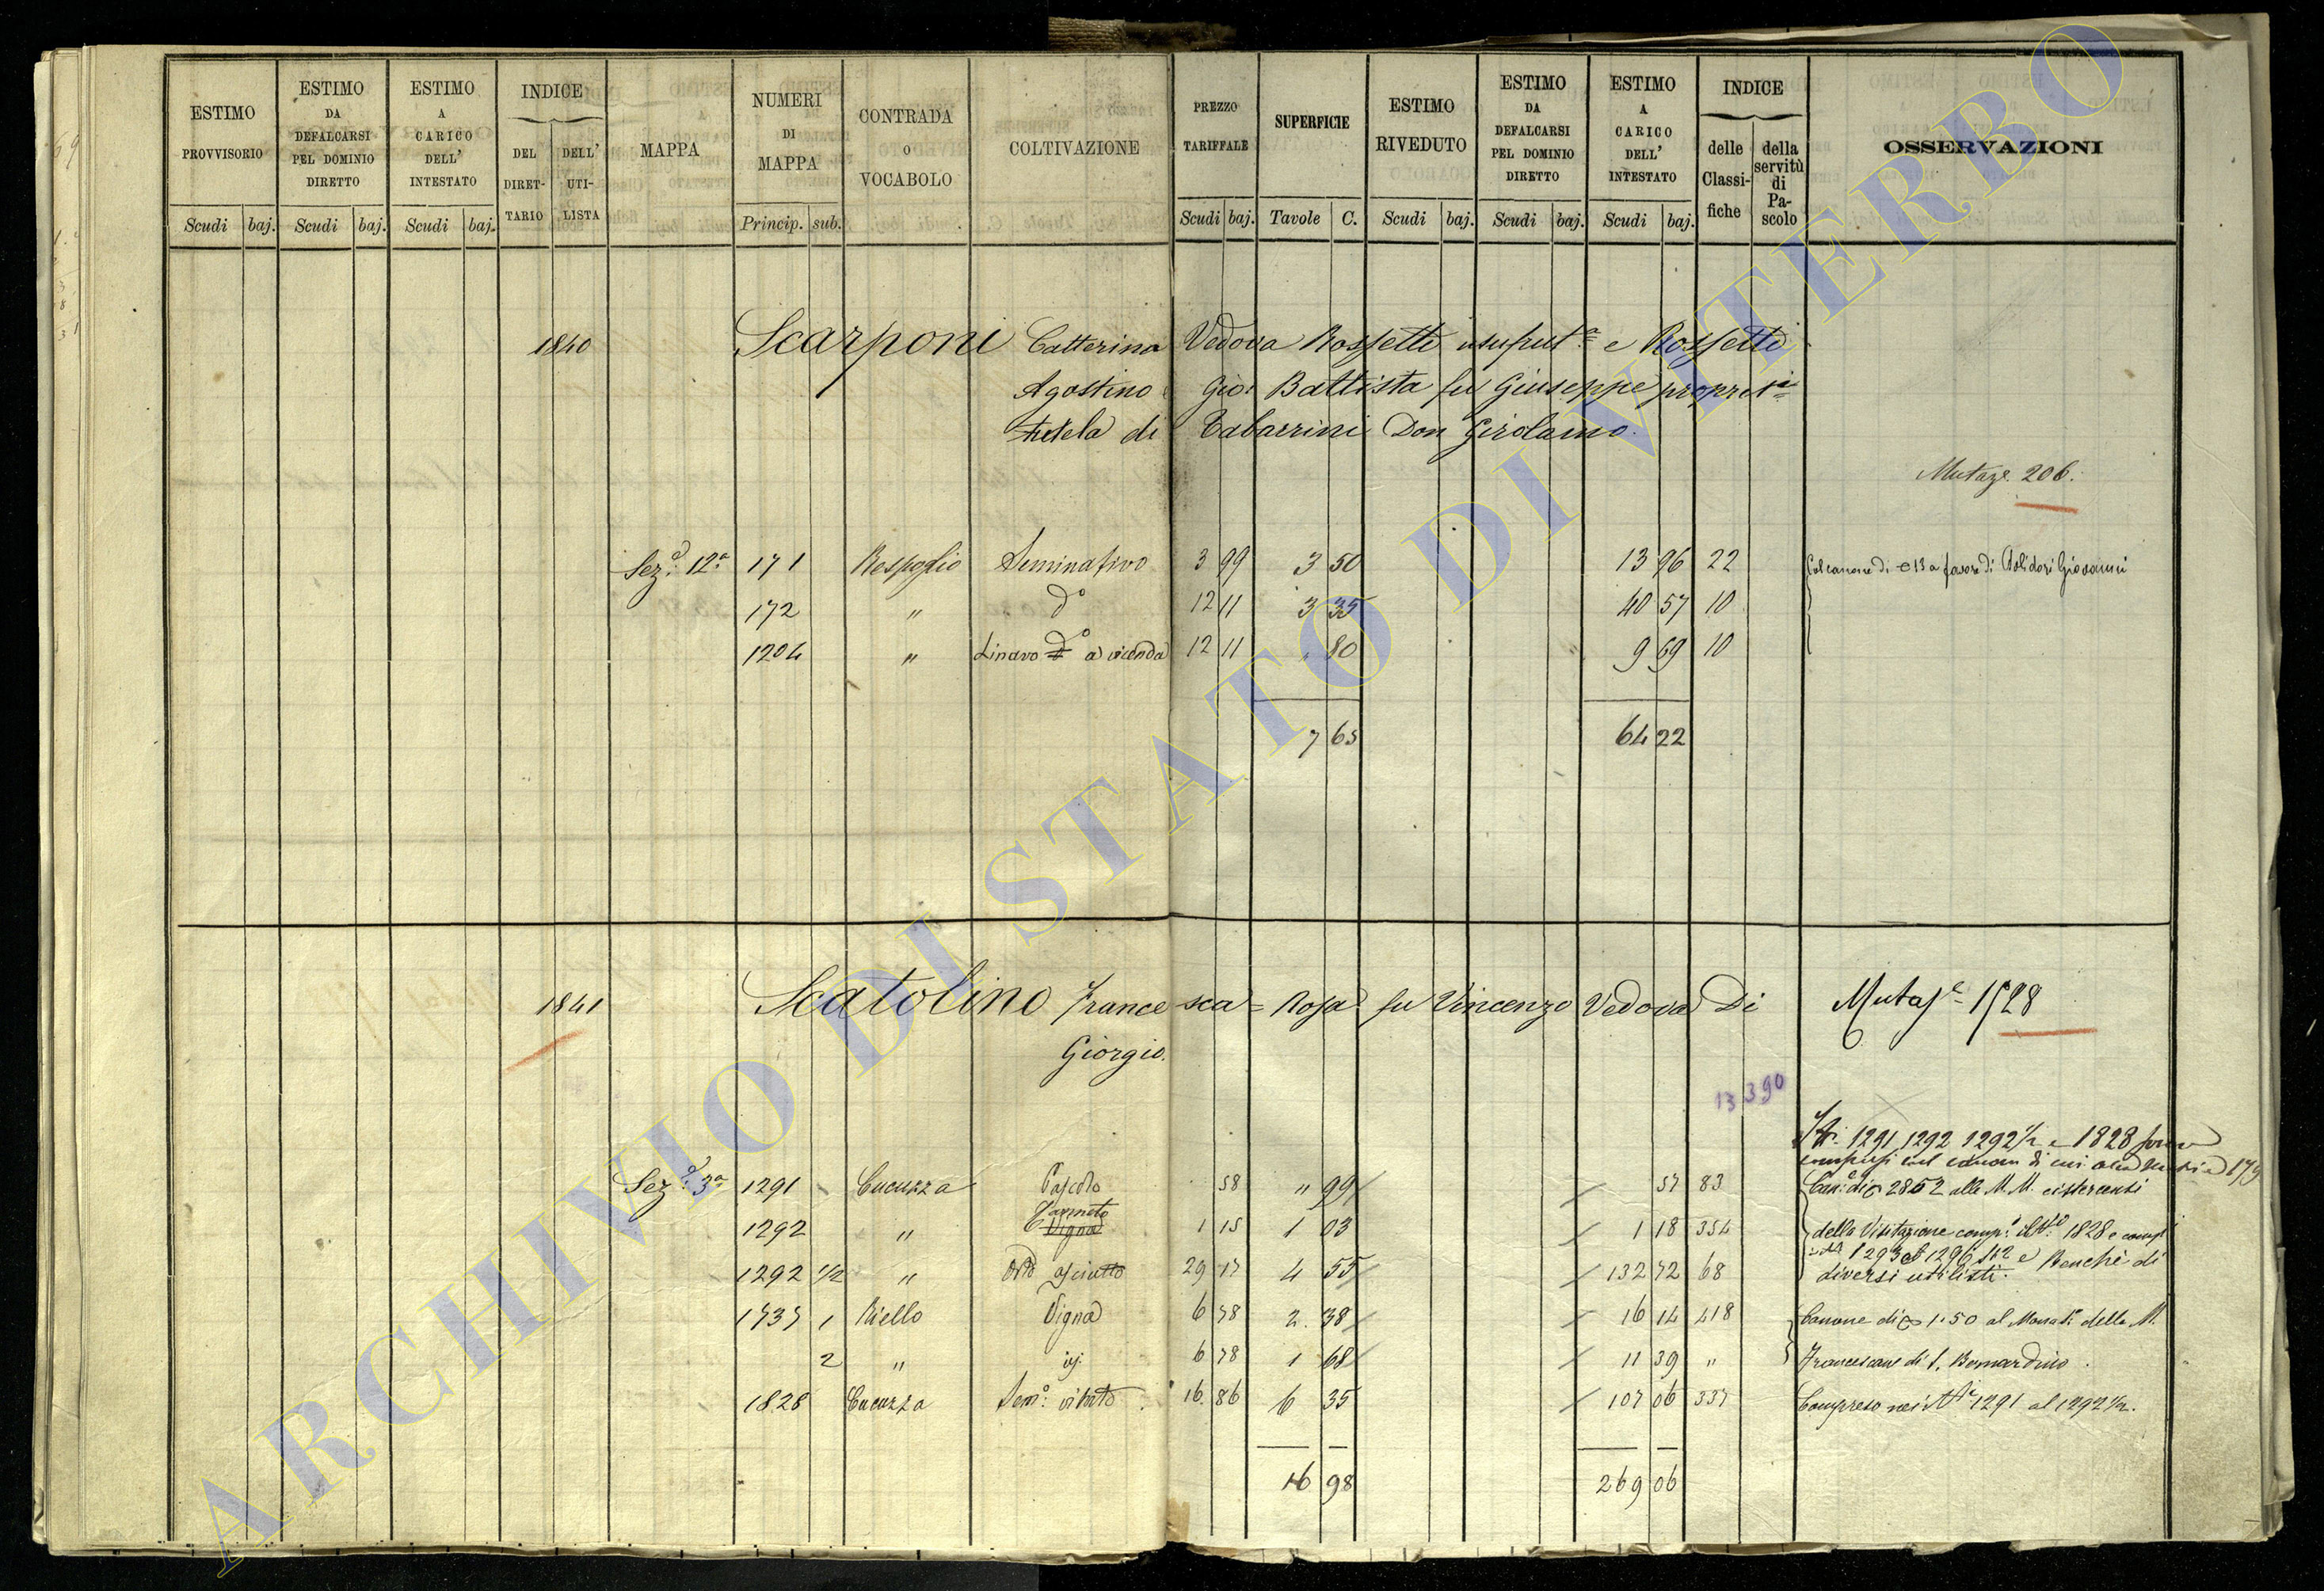 ESTIMO PROVVISORIO
ESTIMO DA DEFALCARSI PEL DOMINIO DIRETTO
ESTIMO A CARICO DELL' INTESTATO
INDICE
DEL DIRETTARIO
DELL' UTILISTA
MAPPA
NUMERI DI MAPPA
CONTRADA O VOCABOLO
COLTIVAZIONE
PREZZO TARIFFALE
SUPERFICIE
ESTIMO RIVEDUTO
ESTIMO DA DEFALCARSI PEL DOMINIO DIRETTO
ESTIMO A CARICO DELL' INTESTATO
INDICE
delle Classifiche
della servitù di Pascolo
OSSERVAZIONI
Scudi baj. Scudi baj. Scudi baj. Princip. sub. Scudi baj. Tavole C. Scudi baj. Scudi baj. Scudi baj.
1840 Scarponi Catterina Vedova Rossetti usufrut.e e Rossetti
Agostino Gio: Battista fu Giuseppe propriet.i
tutela di Tabarrini Don Girolamo.
Mutaz.e 206.
Sez.e 12.a 171 Respoglio Seminativo 3 99 3 50 13 96 22 Col canone di 13 a favore di Polidori Giovanni
172 " d.o 12 11 3 35 40 57 10
1204 " Linavo d.o a vicenda 12 11 " 80 9 69 10
7 65 64 22
1841 Scatolino Francesca Rosa fu Vincenzo Vedova Di
Giorgio.
Mutaz.e 1528
13 390
N.i 1291 1292 1292 1/2 e 1828 sono
compresi nel canone di cui
Sez.e 3.a 1291 Cucuzza Pascolo 58 " 99 57 83 Can.e di 28 52 alle M. M. cistercensi
1292 " Canneto Vigna 1 15 1 03 1 18 354 della Visitazione comp.o il N.o 1828 e compi
1293 al 1296 e Benchè di
1292 1/2 " Orto asciutto 29 17 4 55 132 72 68 diversi utilisti.
1737 1 Riello Vigna 6 78 2 38 16 14 418 Canone di 1.50 al Monast. delle M.
2 " 6 78 1 68 11 39 " Francescane di S. Bernardino.
1828 Cucuzza Sem.o vitato 16 86 6 35 107 06 337 Compreso nei N.i 1291 al 1292 1/2.
16 98 269 06
ARCHIVIO DI STATO DI VITERBO